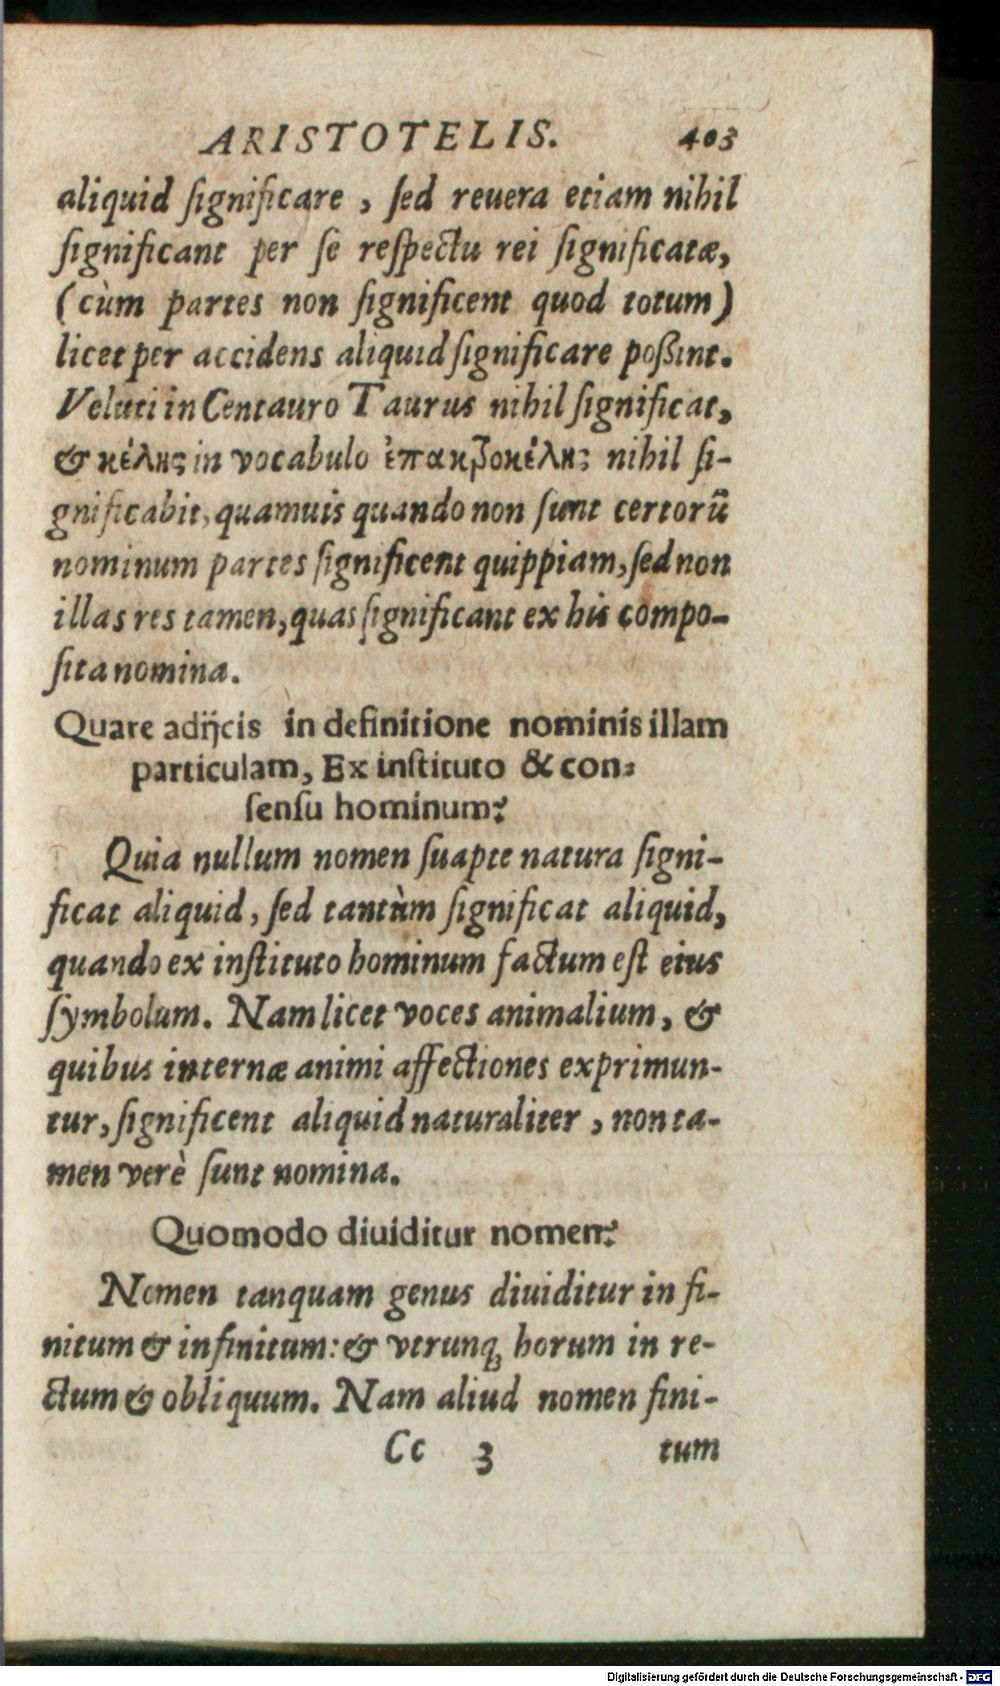 ARISTOTELIS. 403
aliquid ſignificare , ſed reuera etiam nihil
ſignificant per ſe reſpectu rei ſignificatæ,
(cùm partes non ſignificent quod totum)
licet per accidens aliquid ſignificare poßint.
Veluti in Centauro Taurus nihil ſignificat,
& κέλης in vocabulo ἐπακροκέλης nihil ſi-
gnificabit, quamuis quando non ſunt certorū
nominum partes ſignificent quippiam, ſed non
illas res tamen, quas ſignificant ex his compo-
ſita nomina.
Quare adijcis in definitione nominis illam
particulam, Ex inſtituto & con-
ſenſu hominum?
Quia nullum nomen ſuapte natura ſigni-
ficat aliquid, ſed tantùm ſignificat aliquid,
quando ex inſtituto hominum factum eſt eius
ſymbolum. Nam licet voces animalium, &
quibus internæ animi affectiones exprimun-
tur, ſignificent aliquid naturaliter , non ta-
men verè ſunt nomina.
Quomodo diuiditur nomen?
Nomen tanquam genus diuiditur in fi-
nitum & infinitum: & vtrunq; horum in re-
ctum & obliquum. Nam aliud nomen fini-
Cc 3 tum
Digitalisierung gefördert durch die Deutsche Forschungsgemeinschaft - DFG